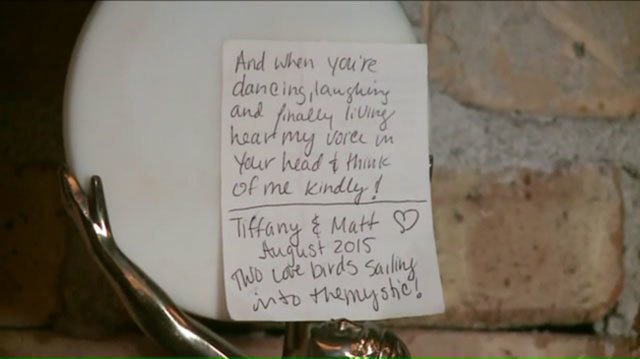 And when you're
dancing, laughing
and finally living
hear my voice in
your head & think
of me kindly!
Tiffany & Matt ♡
August 2015
Two love birds sailing
into the mystic!